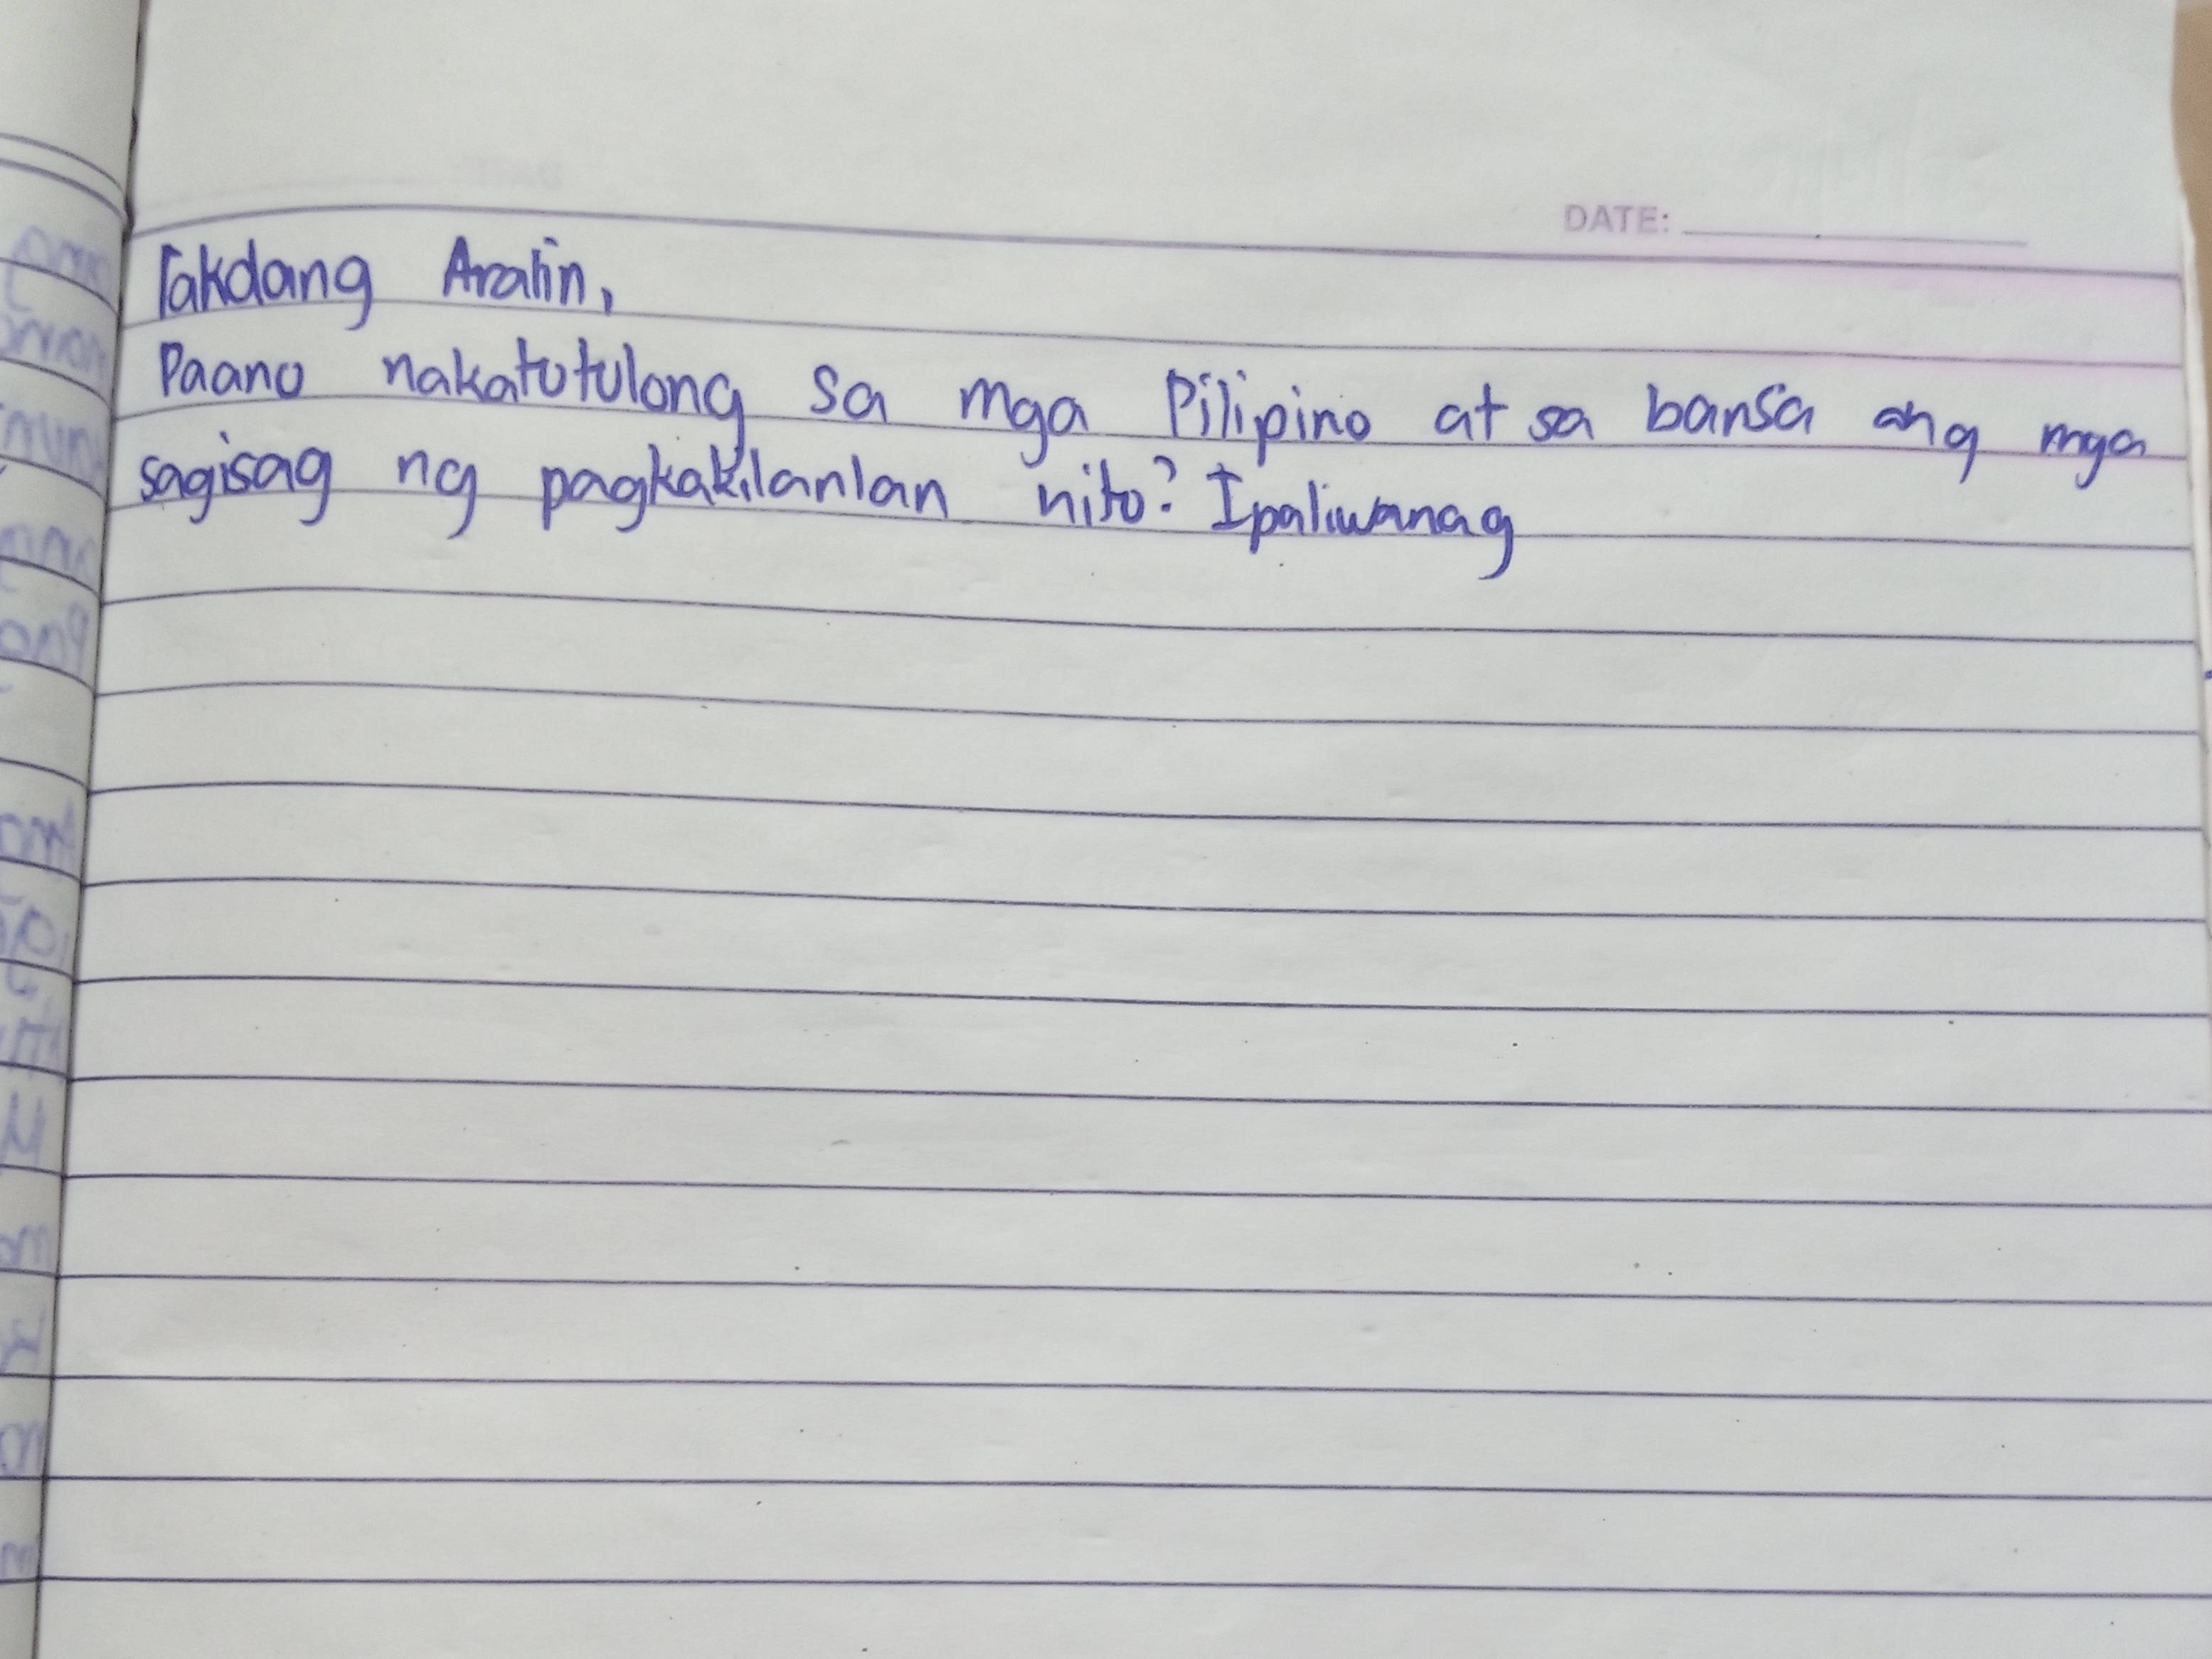 DATE:
Takdang Aralin,
Paano nakatutulong sa mga Pilipino at sa bansa ang mga
sagisag ng pagkakilanlan nito? Ipaliwanag